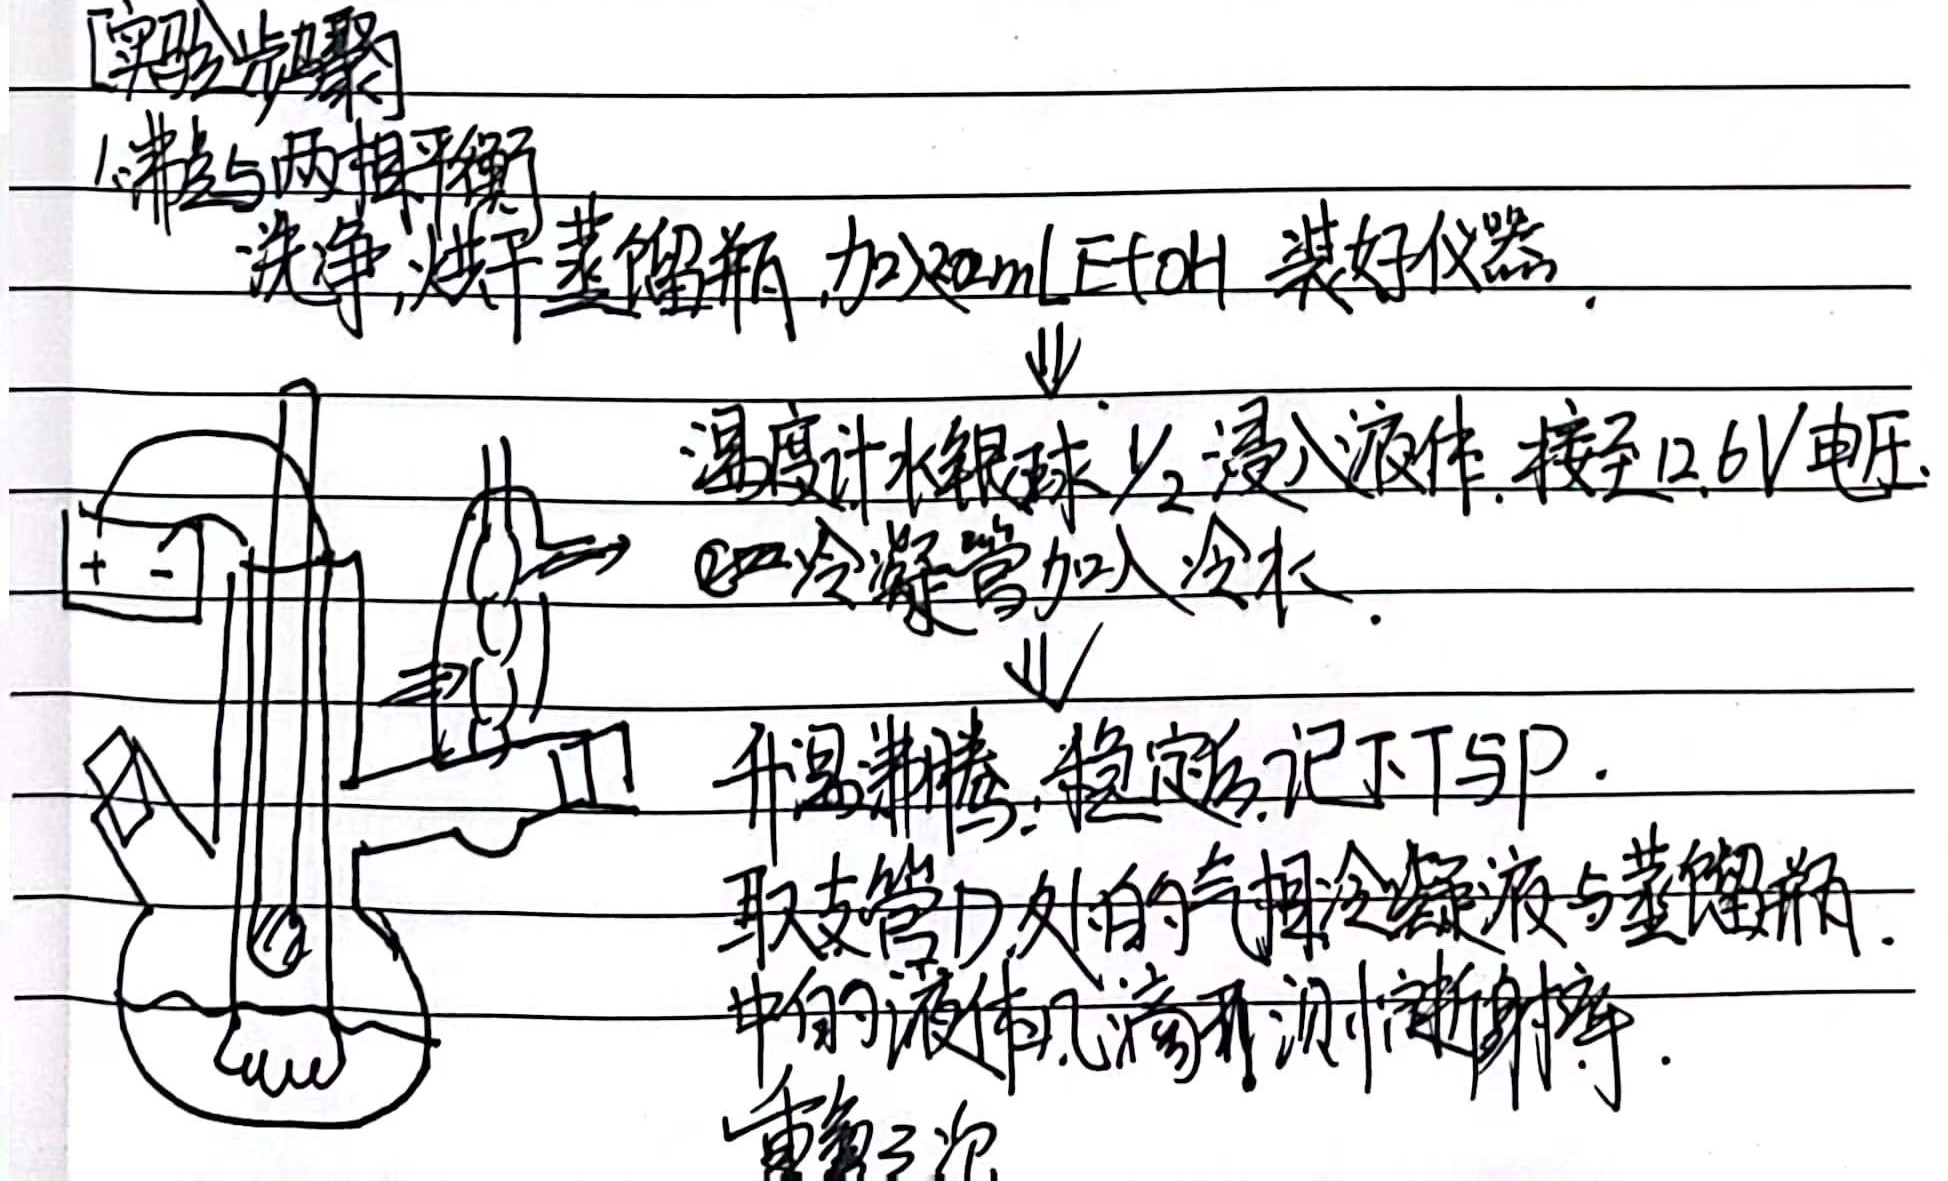 [实验步骤]
1.沸点与两相平衡
洗净,烘干蒸馏瓶,加入20mL EtOH 装好仪器.
温度计水银球 1/2 浸入液体,接至12.6V电压.
冷凝管加入冷水.
+ -
升温沸腾,稳定后,记下T与P.
取支管D处的气相冷凝液与蒸馏瓶.
中的液体几滴,测折射率.
重复三次